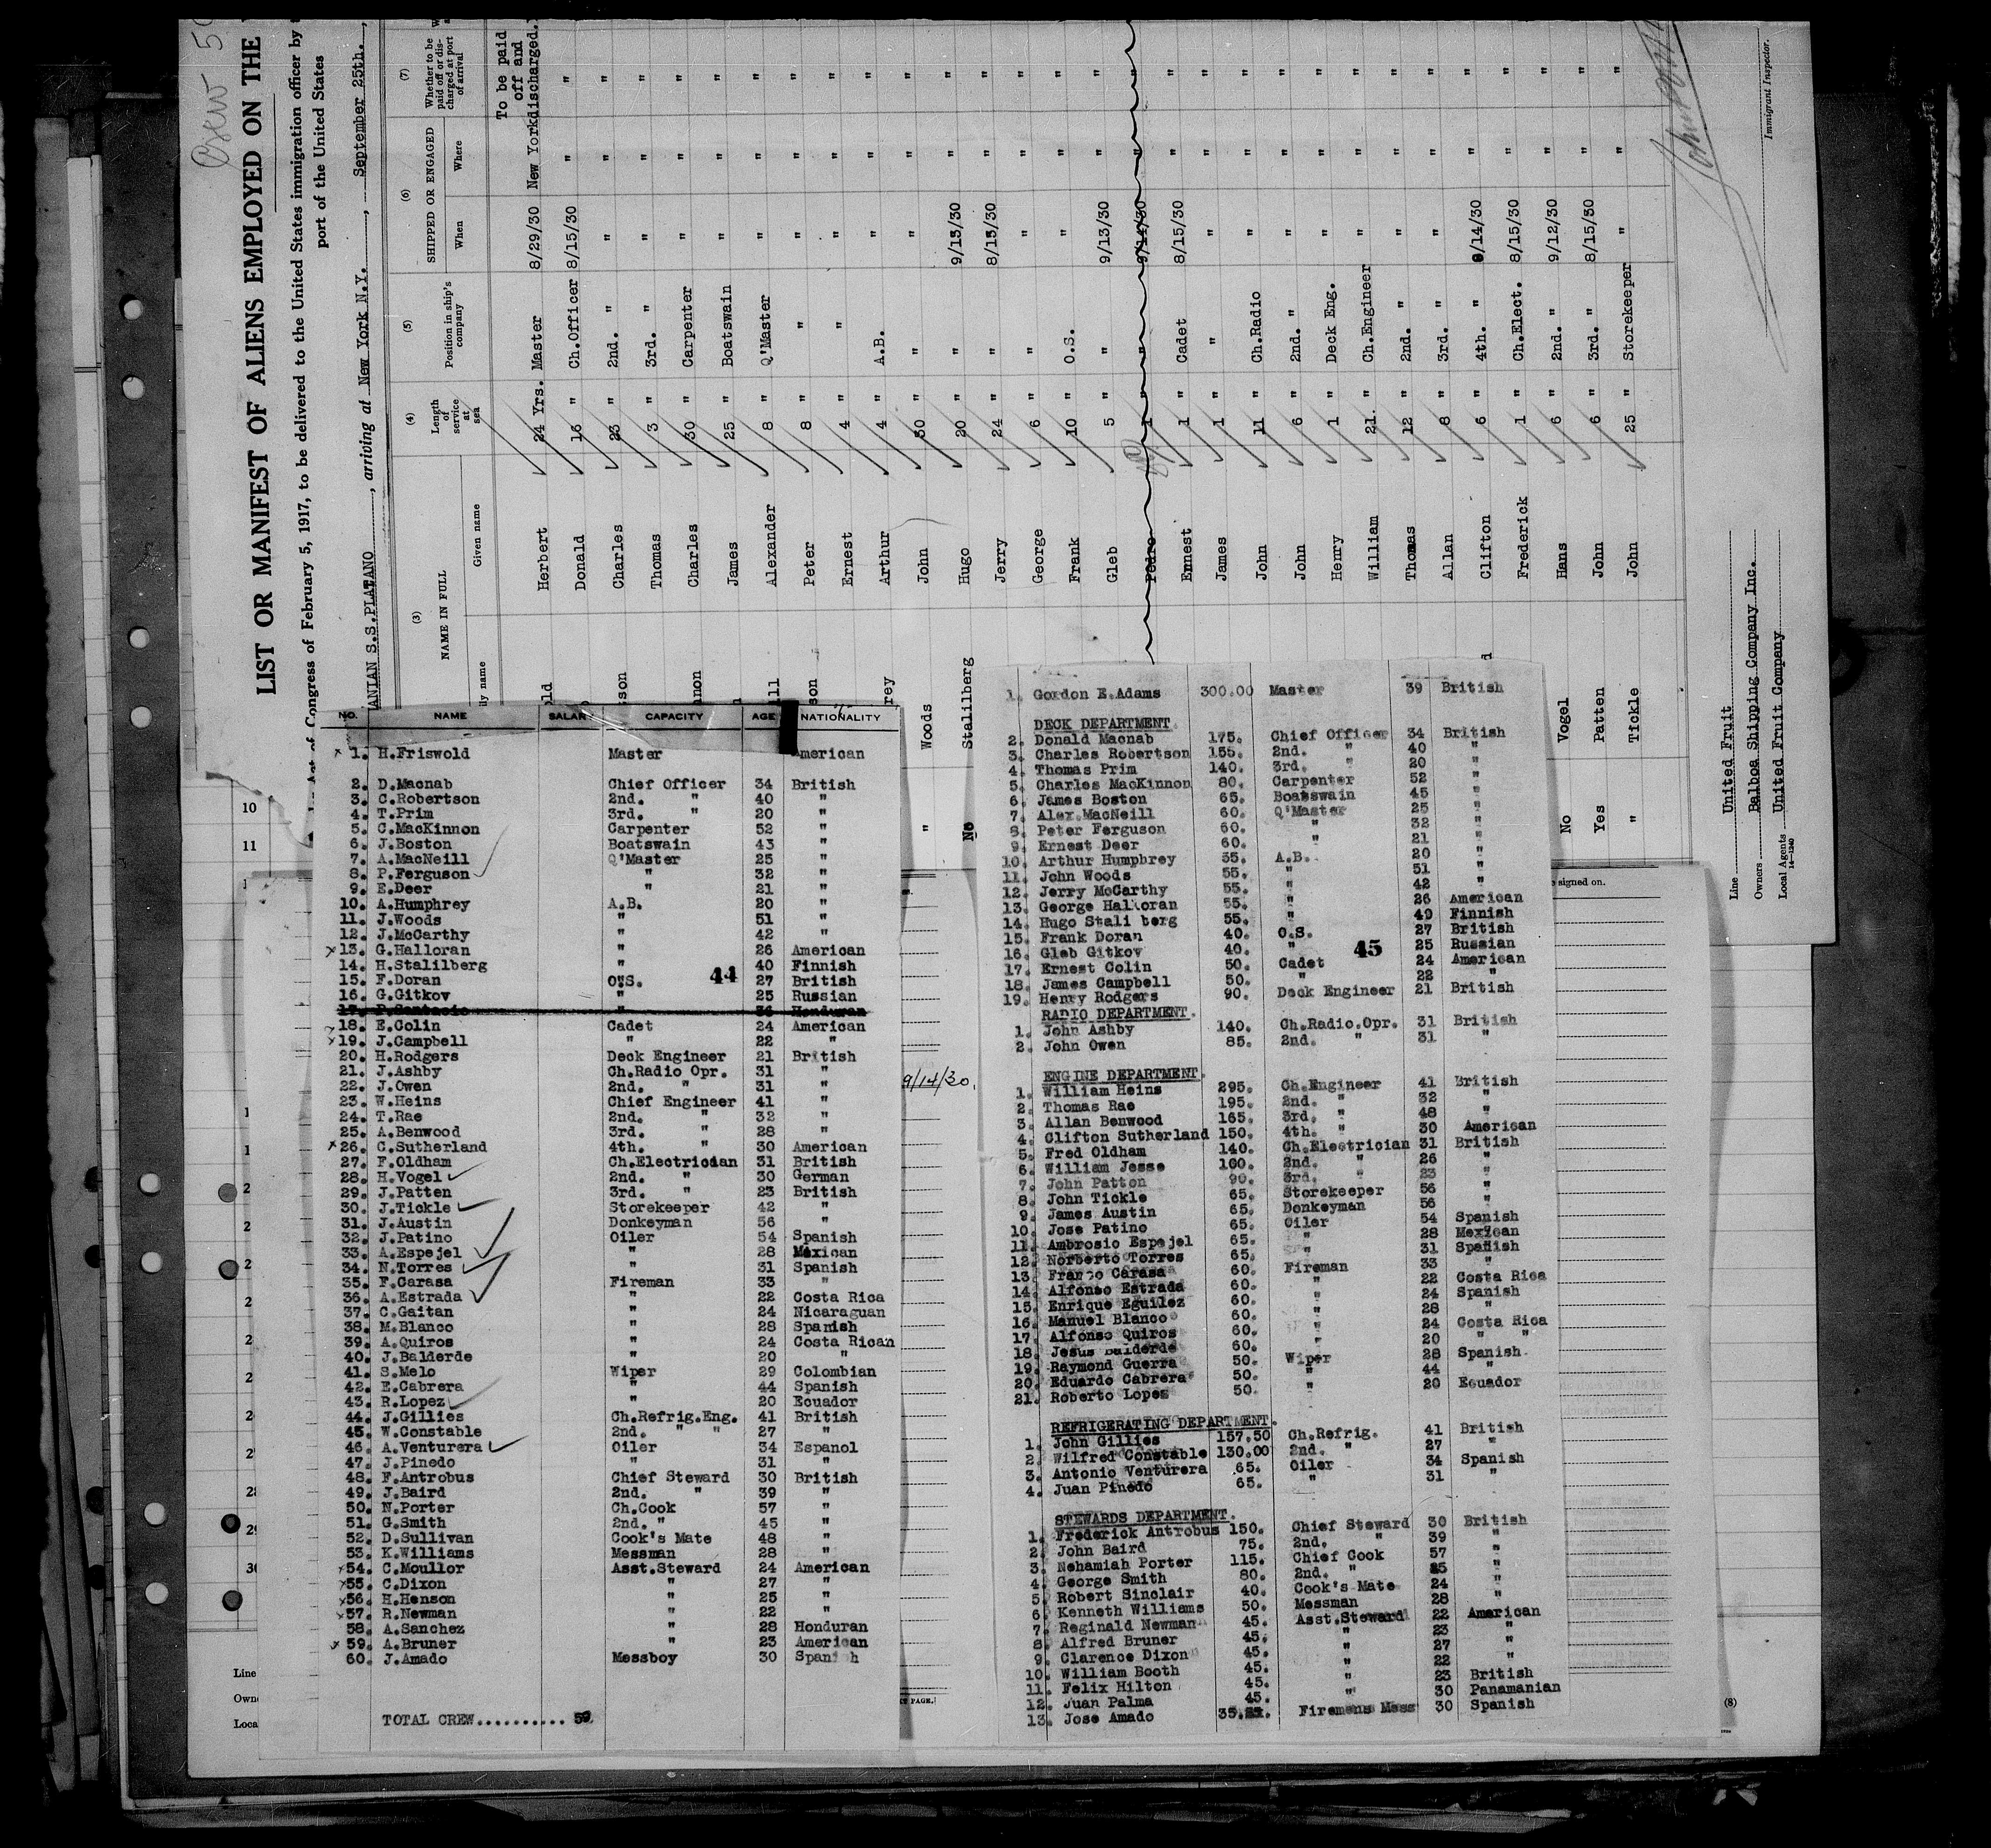 Crew 5
LIST OR MANIFEST OF ALIENS EMPLOYED ON THE
Act of Congress of February 5, 1917, to be delivered to the United States immigration officer by
port of the United States
ANIAN S.S.PLATANO, arriving at New York N.Y., September 25th.,
(3) (4) (5) (6) (7)
NAME IN FULL
Given name
Length of service at sea
Position in ship's company
SHIPPED OR ENGAGED
When Where
Whether to be paid off or discharged at port of arrival
Herbert 24 Yrs. Master 8/29/30 New York To be paid off and discharged.
Donald 16 " Ch.Officer 8/15/30 " "
Charles 23 " 2nd. " " " "
Thomas 3 " 3rd. " " " "
Charles 30 " Carpenter " " "
James 25 " Boatswain " " "
Alexander 8 " Q'Master " " "
Peter 8 " " " " "
Ernest 4 " " " " "
Arthur 4 " A.B. " " "
Woods John 30 " " " " "
Stalilberg Hugo 20 " " 9/13/30 " "
Jerry 24 " " 8/15/30 " "
George 6 " " " " "
Frank 10 " O.S. " " "
Gleb 5 " " 9/13/30 " "
Pedro 1 " " 9/14/30 " "
Ernest 1 " Cadet 8/15/30 " "
James 1 " " " " "
John 11 " Ch.Radio " " "
John 6 " 2nd. " " " "
Henry 1 " Deck Eng. " " "
William 21. " Ch.Engineer " " "
Thomas 12 " 2nd. " " " "
Allan 8 " 3rd. " " " "
Clifton 6 " 4th. " 9/14/30 " "
Frederick 1 " Ch.Elect. 8/15/30 " "
No Vogel Hans 6 " 2nd. " 9/12/30 " "
Yes Patten John 6 " 3rd. " 8/15/30 " "
" Tickle John 25 " Storekeeper " " "
Line United Fruit
Owners Balboa Shipping Company Inc.
Local Agents United Fruit Company
Immigrant Inspector.
NO. NAME SALAR CAPACITY AGE NATIONALITY
1. H.Friswold Master American
2. D.Macnab Chief Officer 34 British
3. C.Robertson 2nd. " 40 "
4. T.Prim 3rd. " 20 "
5. C.MacKinnon Carpenter 52 "
6. J.Boston Boatswain 43 "
7. A.MacNeill Q'Master 25 "
8. P.Ferguson " 32 "
9. E.Deer " 21 "
10. A.Humphrey A.B. 20 "
11. J.Woods " 51 "
12. J.McCarthy " 42 "
13. G.Halloran " 26 American
14. H.Stalilberg " 40 Finnish
15. F.Doran O.S. 44 27 British
16. G.Gitkov " 25 Russian
17. Honduran
18. E.Colin Cadet 24 American
19. J.Campbell " 22 "
20. H.Rodgers Deck Engineer 21 British
21. J.Ashby Ch.Radio Opr. 31 "
22. J.Owen 2nd. " 31 "
23. W.Heins Chief Engineer 41 "
24. T.Rae 2nd. " 32 "
25. A.Benwood 3rd. " 28 "
26. C.Sutherland 4th. " 30 American
27. F.Oldham Ch.Electrician 31 British
28. H.Vogel 2nd. " 30 German
29. J.Patten 3rd. " 23 British
30. J.Tickle Storekeeper 42 "
31. J.Austin Donkeyman 56 "
32. J.Patino Oiler 54 Spanish
33. A.Espejel " 28 Mexican
34. N.Torres " 31 Spanish
35. F.Carasa Fireman 33 "
36. A.Estrada " 22 Costa Rica
37. C.Gaitan " 24 Nicaraguan
38. M.Blanco " 28 Spanish
39. A.Quiros " 24 Costa Rican
40. J.Balderde " 20 "
41. S.Melo Wiper 29 Colombian
42. E.Cabrera " 44 Spanish
43. R.Lopez " 20 Ecuador
44. J.Gillies Ch.Refrig.Eng. 41 British
45. W.Constable 2nd. " " 27 "
46. A.Venturera Oiler 34 Espanol
47. J.Pinedo " 31 "
48. F.Antrobus Chief Steward 30 British
49. J.Baird 2nd. " 39 "
50. N.Porter Ch.Cook 57 "
51. G.Smith 2nd. " 45 "
52. D.Sullivan Cook's Mate 48 "
53. K.Williams Messman 28 "
54. C.Moullor Asst.Steward 24 American
55. C.Dixon " 27 "
56. H.Henson " 25 "
57. R.Newman " 22 "
58. A.Sanchez " 28 Honduran
59. A.Bruner " 23 American
60. J.Amado Messboy 30 Spanish
TOTAL CREW..........
9/14/30.
1. Gordon E.Adams 300.00 Master 39 British
DECK DEPARTMENT.
2. Donald Macnab 175. Chief Officer 34 British
3. Charles Robertson 155. 2nd. " 40 "
4. Thomas Prim 140. 3rd. " 20 "
5. Charles MacKinnon 80. Carpenter 52 "
6. James Boston 65. Boatswain 45 "
7. Alex.MacNeill 60. Q'Master 25 "
8. Peter Ferguson 60. " 32 "
9. Ernest Deer 60. " 21 "
10. Arthur Humphrey 55. A.B. 20 "
11. John Woods 55. " 51 "
12. Jerry McCarthy 55. " 42 "
13. George Halloran 55. " 26 American
14. Hugo Stali berg 55. " 49 Finnish
15. Frank Doran 40. O.S. 27 British
16. Gleb Gitkov 40. " 45 25 Russian
17. Ernest Colin 50. Cadet 24 American
18. James Campbell 50. " 22 "
19. Henry Rodgers 90. Deck Engineer 21 British
RADIO DEPARTMENT.
1. John Ashby 140. Ch.Radio.Opr. 31 British
2. John Owen 85. 2nd. " 31 "
ENGINE DEPARTMENT.
1. William Heins 295. Ch.Engineer 41 British
2. Thomas Rae 195. 2nd. " 32 "
3. Allan Benwood 165. 3rd. " 48 "
4. Clifton Sutherland 150. 4th. " 30 American
5. Fred Oldham 140. Ch.Electrician 31 British
6. William Jesse 100. 2nd. " 26 "
7. John Patton 90. 3rd. " 23 "
8. John Tickle 65. Storekeeper 56 "
9. James Austin 65. Donkeyman 56 "
10. Jose Patino 65. Oiler 54 Spanish
11. Ambrosio Espejel 65. " 28 Mexican
12. Norberto Torres 65. " 31 Spanish
13. Franco Carasa 60. Fireman 33 "
14. Alfonso Estrada 60. " 22 Costa Rica
15. Enrique Eguilez 60. " 24 Spanish
16. Manuel Blanco 60. " 28 "
17. Alfonso Quiros 60. " 24 Costa Rica
18. Jesus Balderde 60. " 20 " "
19. Raymond Guerra 50. Wiper 28 Spanish
20. Eduardo Cabrera 50. " 44 "
21. Roberto Lopez 50. " 20 Ecuador
REFRIGERATING DEPARTMENT.
1. John Gillies 157.50 Ch.Refrig. 41 British
2. Wilfred Constable 130.00 2nd. " 27 "
3. Antonio Venturera 65. Oiler 34 Spanish
4. Juan Pinedo 65. " 31 "
STEWARDS DEPARTMENT.
1. Frederick Antrobus 150. Chief Steward 30 British
2. John Baird 75. 2nd. " 39 "
3. Nehamiah Porter 115. Chief Cook 57 "
4. George Smith 80. 2nd. " "
5. Robert Sinclair 40. Cook's Mate 24 "
6. Kenneth Williams 50. Messman 28 "
7. Reginald Newman 45. Asst.Steward 22 American
8. Alfred Bruner 45. " 23 "
9. Clarence Dixon 45. " 27 "
10. William Booth 45. " 22 "
11. Felix Hilton 45. " 23 British
12. Juan Palma 45. " 30 Panamanian
13. Jose Amado 35. Firemens Mess 30 Spanish
signed on.
(8)
10
11
Line
Own
Loca